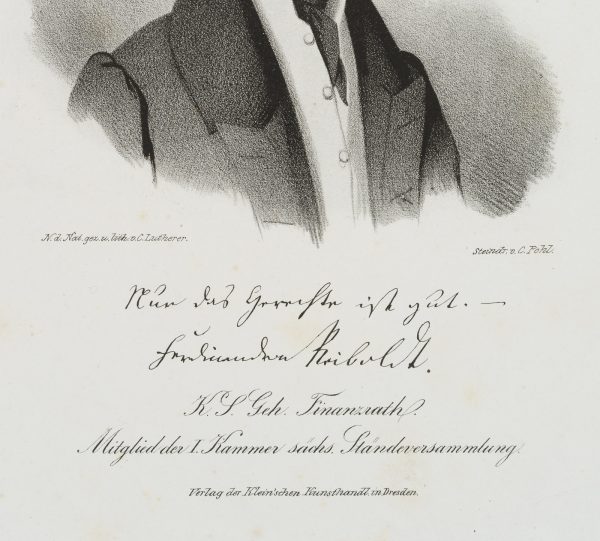 N. d. Nat. gez. u. lith. v. C. Lutherer.
Steindr. v. C. Pohl.
Nur das Gerechte ist gut. —
Ferdinand Reiboldt.
K. S. Geh. Finanzrath.
Mitglied der I. Kammer sächs. Ständeversammlung.
Verlag der Klein'schen Kunsthandl. in Dresden.